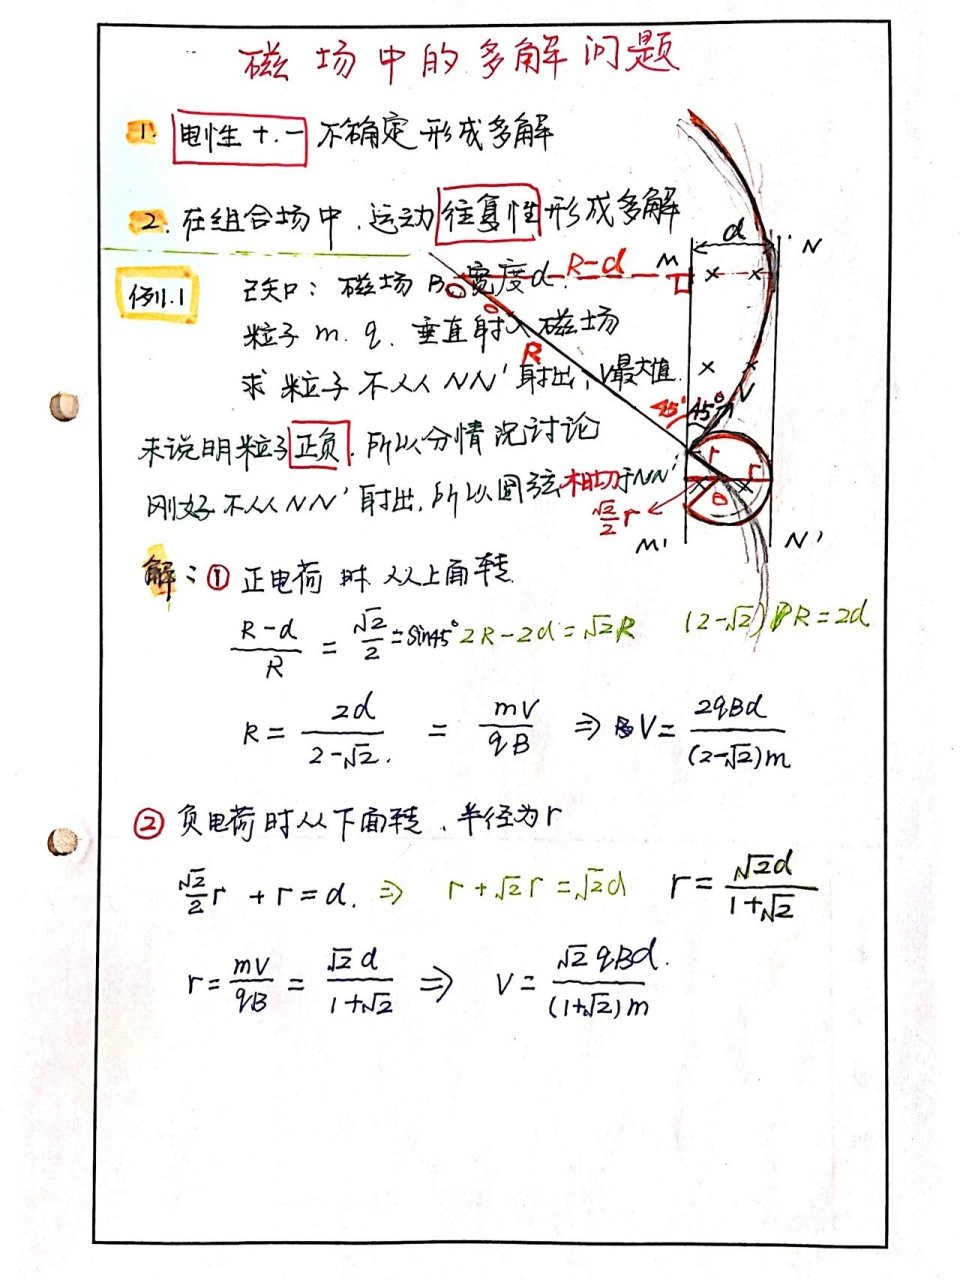 磁场中的多解问题
1. 电性十.一不确定形成多解
2. 在组合场中.运动往复性形成多解
例1.1 已知: 磁场B.宽度d.
粒子m.q.垂直射入磁场
求粒子不从NN'射出,V最大值.
未说明粒子正负.所以分情况讨论
刚好不从NN'射出,所以圆弧相切于NN'
d
M
N
R-d
O
R
45°
45°
V
r
r
θ
√2/2 r
M'
N'
解: ① 正电荷时从上面转.
(R-d)/R = √2/2 = sin45° 2R-2d=√2R (2-√2)R=2d
R = 2d/(2-√2). = mV/qB ⇒ V = 2qBd/(2-√2)m
② 负电荷时从下面转.半径为r
√2/2 r + r = d. ⇒ r+√2r=√2d r = √2d/1+√2
r = mV/qB = √2d/1+√2 ⇒ V = √2qBd./(1+√2)m